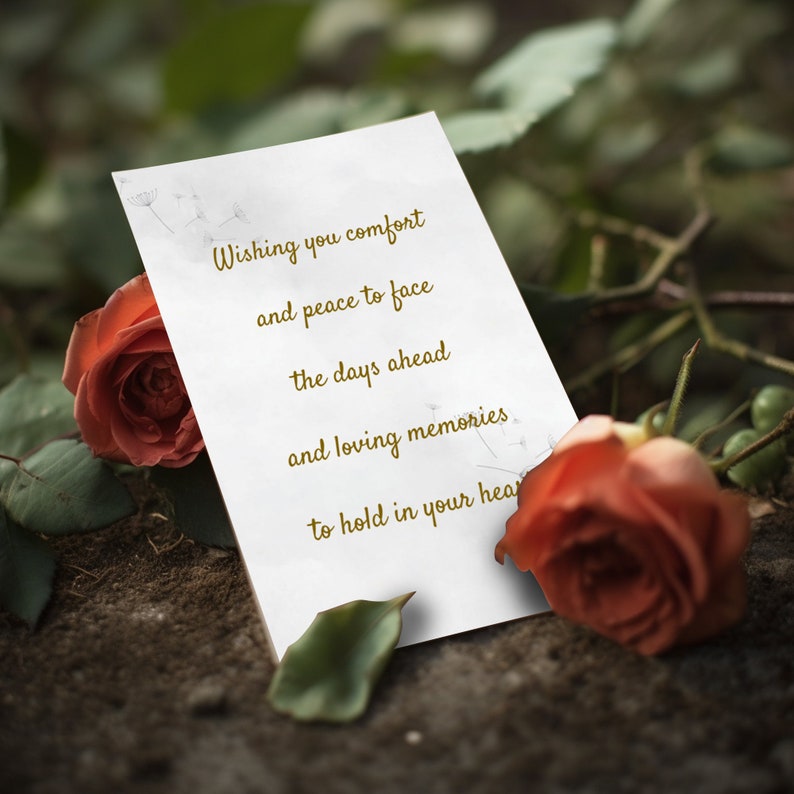 Wishing you comfort
and peace to face
the days ahead
and loving memories
to hold in your